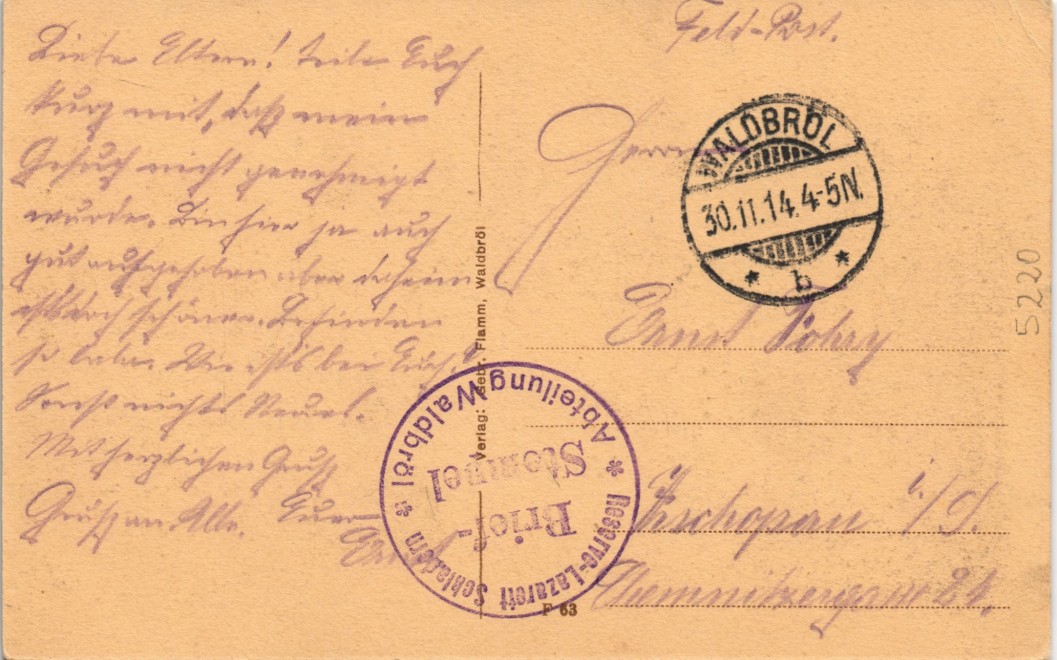 Liebe Eltern! Teile Euch
kurz mit, daß mein
Gesuch nicht genehmigt
wurde. Bin hier ja auch
gut aufgehoben aber daheim
ists doch schöner. Befinden
so lala. Wie ists bei Euch?
Sonst nichts Neues.
Mit herzlichen Gruß
Gruß an Alle. Euer
Ernst
Feld-Post.
Herrn
WALDBRÖL
30.11.14.4-5N.
* b *
Ernst Pohry
Zschopau i/S.
Chemnitzerstr 84.
5220
Verlag: Gebr. Flamm, Waldbröl
Reserve-Lazarett Schladern
* Abteilung Waldbröl *
Brief-
Stempel
F 63